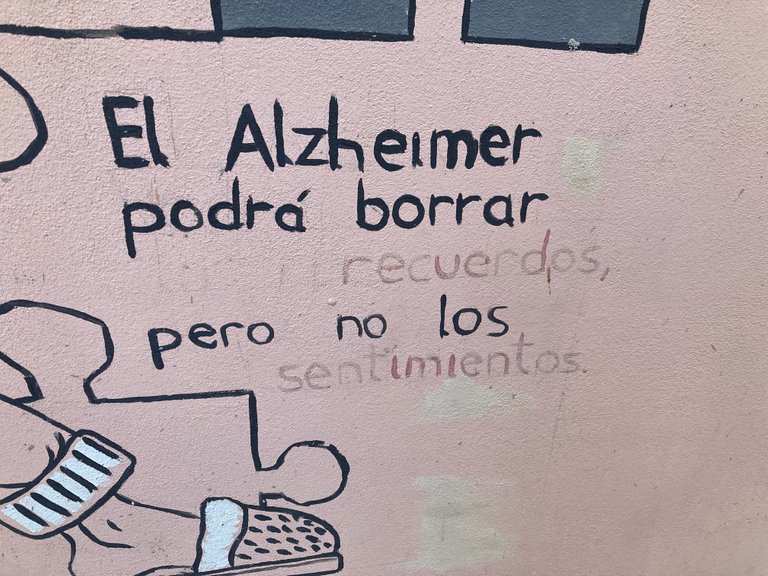 El Alzheimer
podrá borrar
recuerdos,
pero no los
sentimientos.